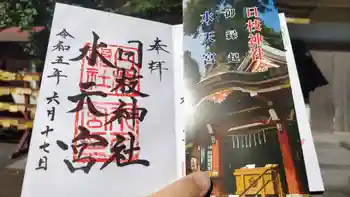 奉拝
日枝神社
水天宮
令和五年六月十七日
日枝神社
水天宮
御縁起